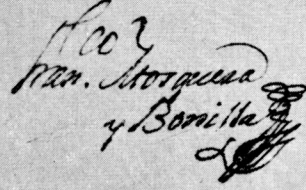 Fran. Mosquera
y Bonilla